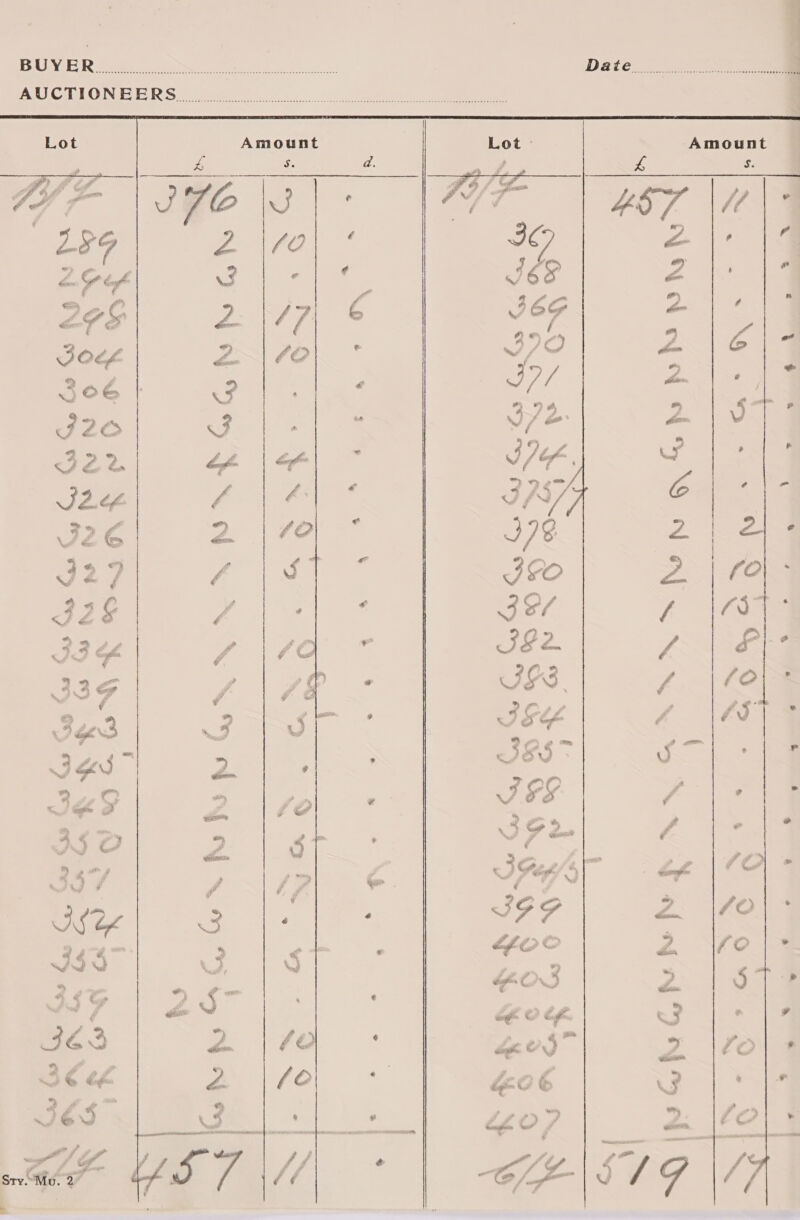 BUYER Date
AUCTIONEERS
Lot Amount
£ s. d.
B/F 376 3 -
289 2 10 -
294 3 - -
298 2 17 6
304 2 10 -
306 3 - -
320 3 - -
322 4 4
324 1 1 -
326 2 10 -
327 1 5 -
328 1 - -
334 1 10 -
339 1 18 -
343 3 5 -
345 2 - -
349 2 10 -
350 2 5 -
351 1 17 6
354 3 - -
355 3 5 -
359 25 - -
363 2 10 -
364 2 10 -
365 3 - -
C/F 457 11 -
Sty. Mo. 2
Lot Amount
£ s.
B/F 457 11 -
367 2 - -
368 2 - -
369 2 - -
370 2 6 -
371 2 - -
372 2 5 -
374 3 - -
375/7 6 - -
378 2 2 -
380 2 10 -
381 1 15 -
382 1 8 -
383 1 10 -
384 1 15 -
385 5 - -
388 1 - -
392 1 - -
394/5 4 10 -
399 2 10 -
400 2 10 -
403 2 5 -
404 3 - -
405 2 10 -
406 3 - -
407 2 10 -
C/F 519 17